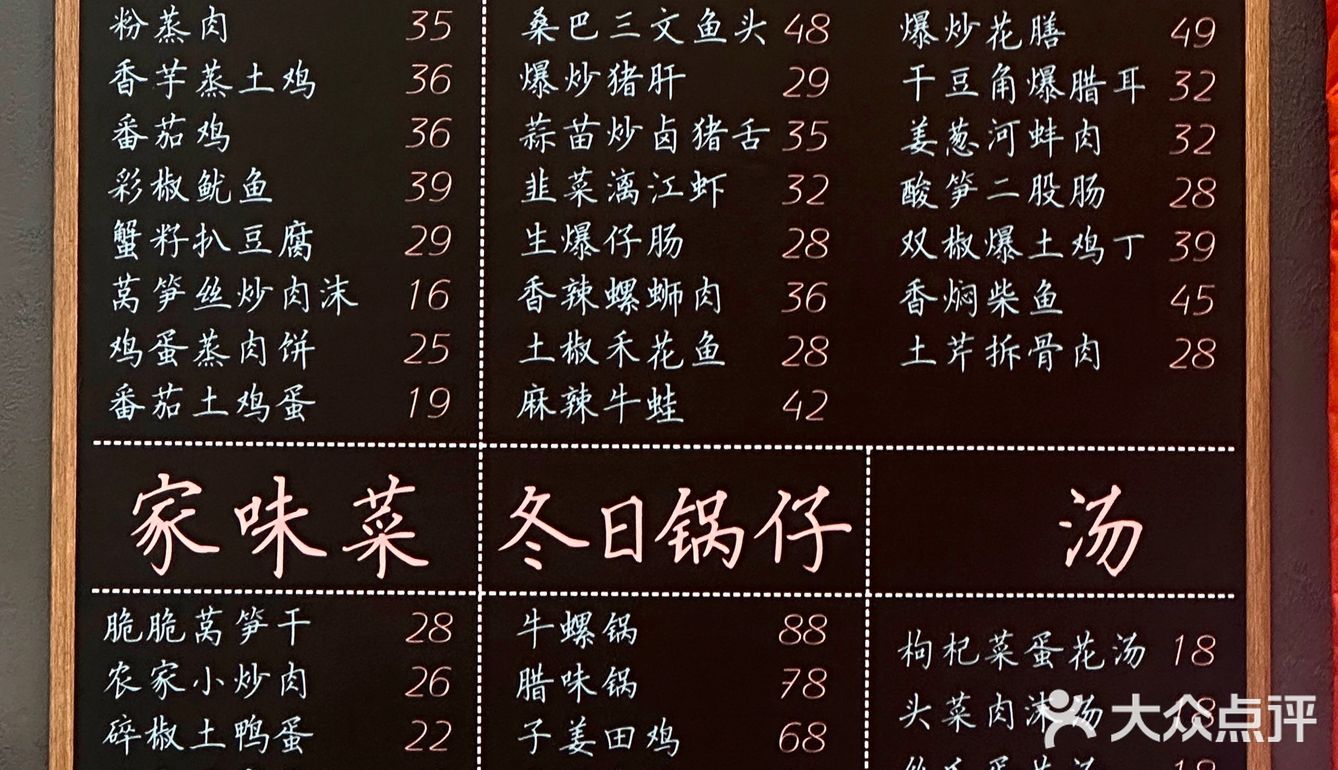 粉蒸肉 35
香芋蒸土鸡 36
番茄鸡 36
彩椒鱿鱼 39
蟹籽扒豆腐 29
莴笋丝炒肉沫 16
鸡蛋蒸肉饼 25
番茄土鸡蛋 19
桑巴三文鱼头 48
爆炒猪肝 29
蒜苗炒卤猪舌 35
韭菜漓江虾 32
生爆仔肠 28
香辣螺蛳肉 36
土椒禾花鱼 28
麻辣牛蛙 42
爆炒花膳 49
干豆角爆腊耳 32
姜葱河蚌肉 32
酸笋二股肠 28
双椒爆土鸡丁 39
香焖柴鱼 45
土芹拆骨肉 28
家味菜
脆脆莴笋干 28
农家小炒肉 26
碎椒土鸭蛋 22
冬日锅仔
牛螺锅 88
腊味锅 78
子姜田鸡 68
汤
枸杞菜蛋花汤 18
头菜肉沫汤
大众点评